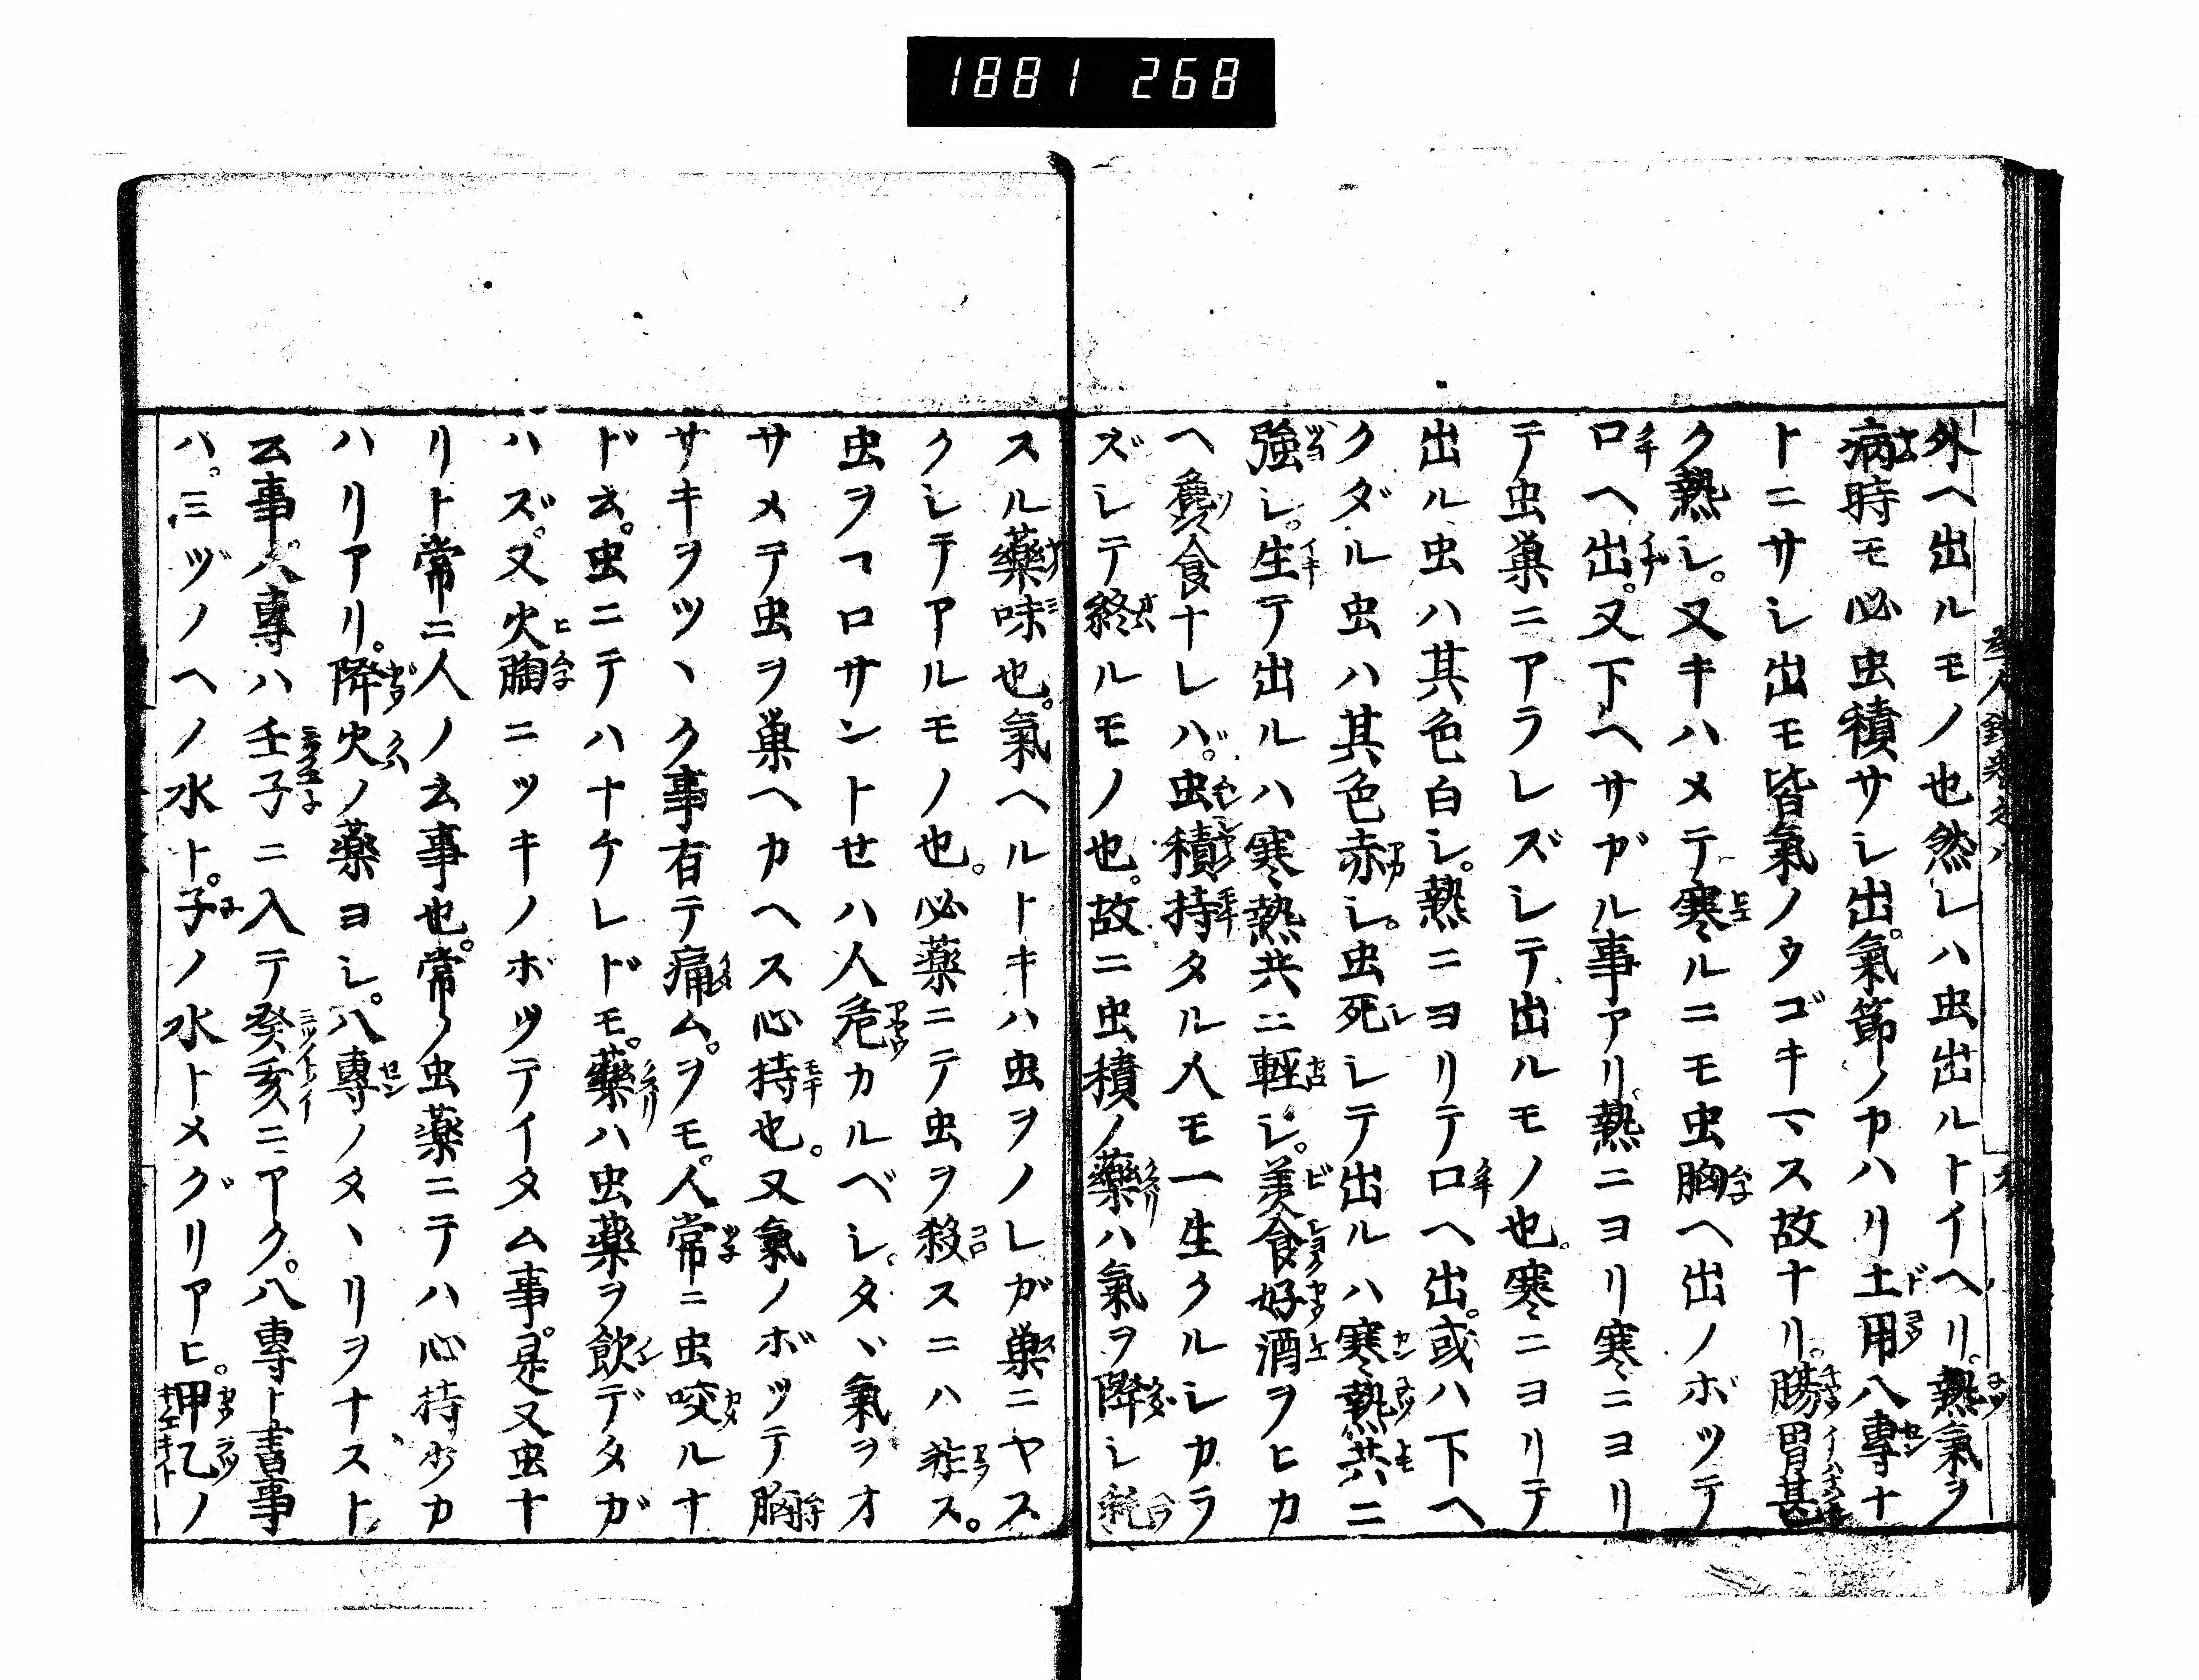 1881 268
外ヘ出ルモノ也然レハ虫出ルトイヘリ。熱氣ヲ
病時モ必虫積サレ出。氣節ノカハリ土用八專ナ
トニサレ出モ皆氣ノウゴキマス故ナリ。腸胃甚
ク熱シ。又キハメテ寒ルニモ虫胸ヘ出ノボツテ
口ヘ出。又下ヘサガル事アリ。熱ニヨリ寒ニヨリ
テ虫巣ニアラレズシテ出ルモノ也。寒ニヨリテ
出ル虫ハ其色白シ。熱ニヨリテ口ヘ出。或ハ下ヘ
クダル虫ハ其色赤シ。虫死シテ出ルハ寒熱共ニ
強シ。生テ出ルハ寒熱共ニ輕シ。美食好酒ヲヒカ
ヘ麁食ナレバ。虫積持タル人モ一生クルシカラ
ズシテ終ルモノ也。故ニ虫積ノ藥ハ氣ヲ降シ耗
スル藥味也。氣ヘルトキハ虫ヲノレガ巣ニヤス
クシテアルモノ也。必薬ニテ虫ヲ殺スニハ非ス。
虫ヲコロサントセハ人危カルベシ。タヽ氣ヲオ
サメテ虫ヲ巣ヘカヘス心持也。又氣ノボツテ胸
サキヲツヽク事有テ痛ム。ヲモ。人常ニ虫咬ルナ
ド云。虫ニテハナケレドモ。藥ハ虫薬ヲ飲デタガ
ハズ。又火胸ニツキノボツテイタム事。是又虫ナ
リト常ニ人ノ云事也。常ノ虫薬ニテハ心持少カ
ハリアリ。降火ノ薬ヨシ。八專ノタヽリヲナスト
云事。八專ハ壬子ニ入テ癸亥ニアク。八專ト書事
ハ。ミヅノヘノ水ト。子ノ水トメグリアヒ。甲乙ノ